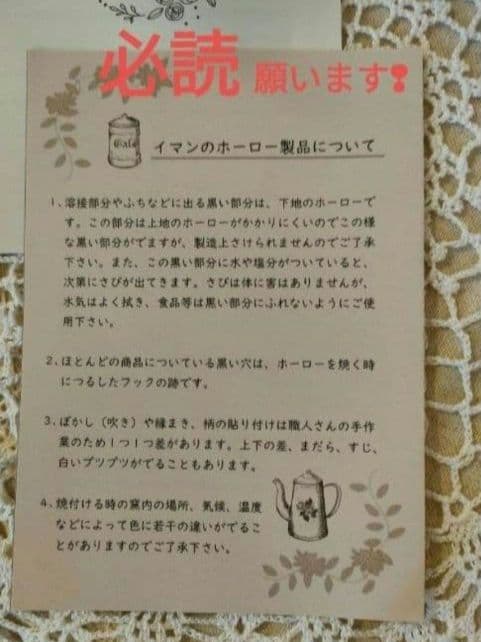 必読 願います❢
Café
イマンのホーロー製品について
1、溶接部分やふちなどに出る黒い部分は、下地のホーローで
す。この部分は上地のホーローがかかりにくいのでこの様
な黒い部分がでますが、製造上さけられませんのでご了承
下さい。また、この黒い部分に水や塩分がついていると、
次第にさびが出てきます。さびは体に害はありませんが、
水気はよく拭き、食品等は黒い部分にふれないようにご使
用下さい。
2、ほとんどの商品についている黒い穴は、ホーローを焼く時
につるしたフックの跡です。
3、ぼかし（吹き）や縁まき、柄の貼り付けは職人さんの手作
業のため1つ1つ差があります。上下の差、まだら、すじ、
白いブツブツがでることもあります。
4、焼付ける時の窯内の場所、気候、温度
などによって色に若干の違いがでるこ
とがありますのでご了承下さい。